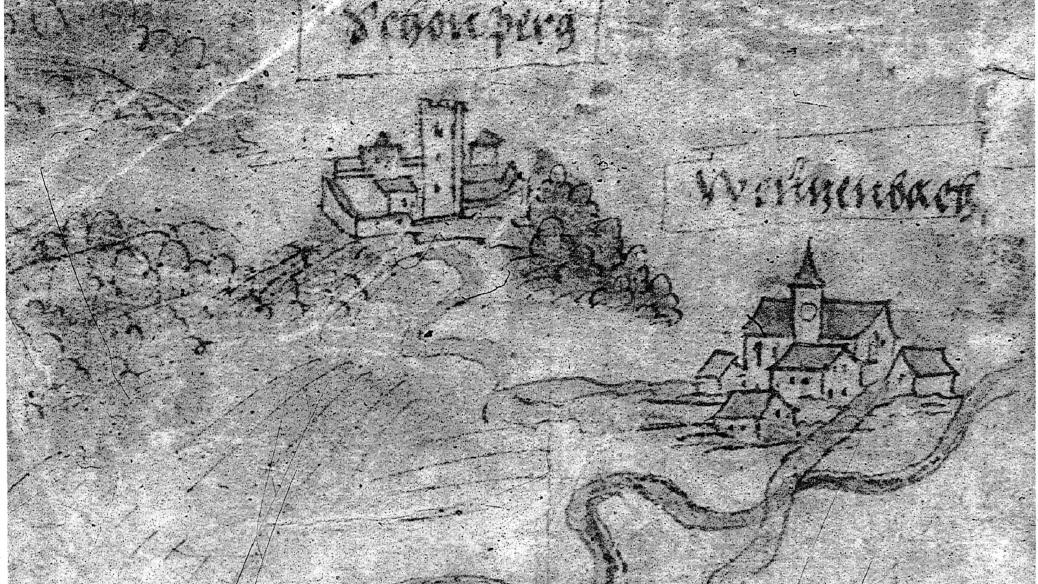 Schonperg
Wentzenbach